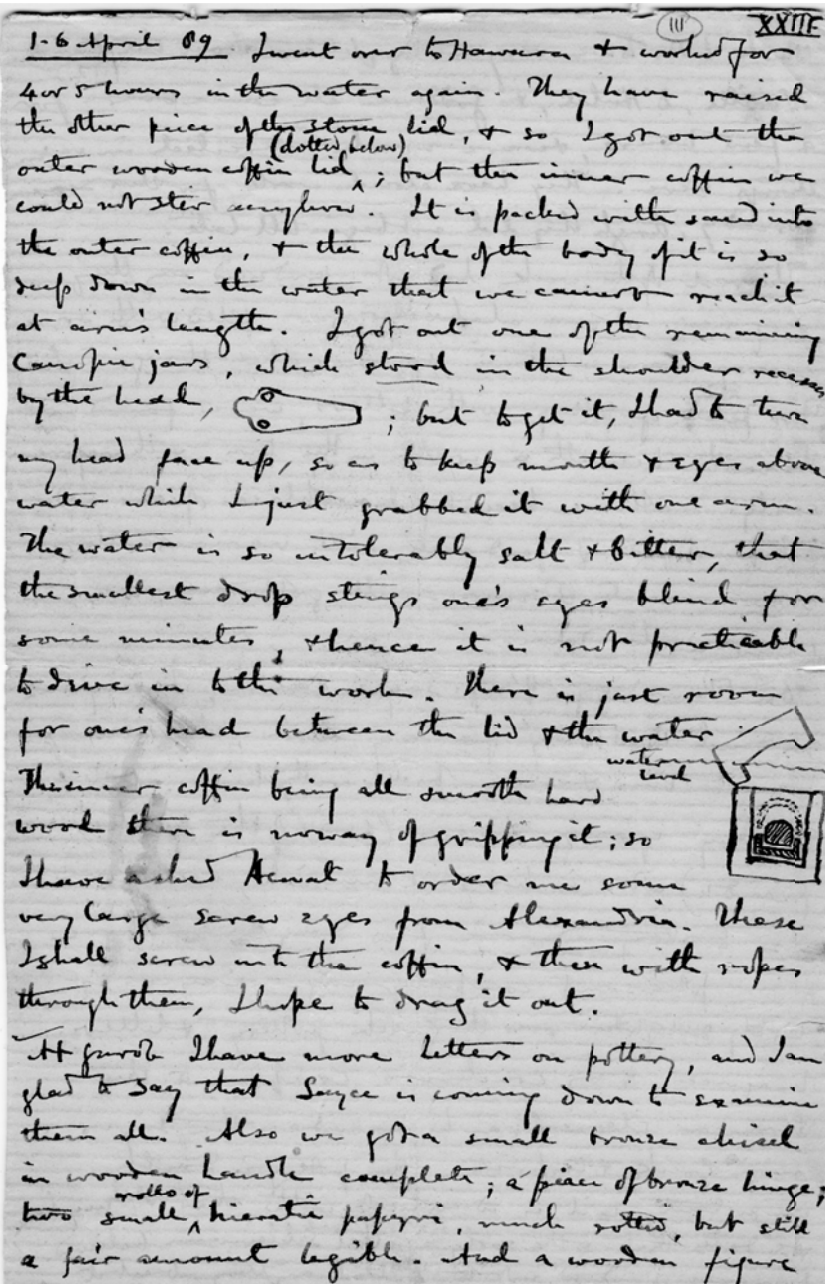 (III) XXIIE
1-6 April 89. I went over to Hawara & worked for
4 or 5 hours in the water again. They have raised
the other piece of the stone lid, & so I got out the
(dotted, below)
outer wooden coffin lid ^ ; but the inner coffin we
could not stir anyhow. It is packed with sand into
the outer coffin, & the whole of the body of it is so
deep down in the water that we cannot reach it
at arm's length. I got out one of the remaining
Canopic jars, which stood in the shoulder recesses
by the head, ; but to get it, I had to turn
my head face up, so as to keep mouth & eyes above
water while I just grabbed it with one arm.
The water is so intolerably salt & bitter, that
the smallest drop stings one's eyes blind for
some minutes, & hence it is not practicable
to dive in to the work. There is just room
for one's head between the lid & the water
water level
The inner coffin being all smooth hard
wood there is no way of gripping it; so
I have asked Hewat to order me some
very large screw eyes from Alexandria. These
I shall screw into the coffin, & then with ropes
through them, I hope to drag it out.
At Gurob I have more letters on pottery, and I am
glad to say that Sayce is coming down to examine
them all. Also we got a small bronze chisel
in wooden handle complete; a piece of bronze hinge;
rolls of
two small ^ hieratic papyri, much rotted, but still
a fair amount legible. And a wooden figure